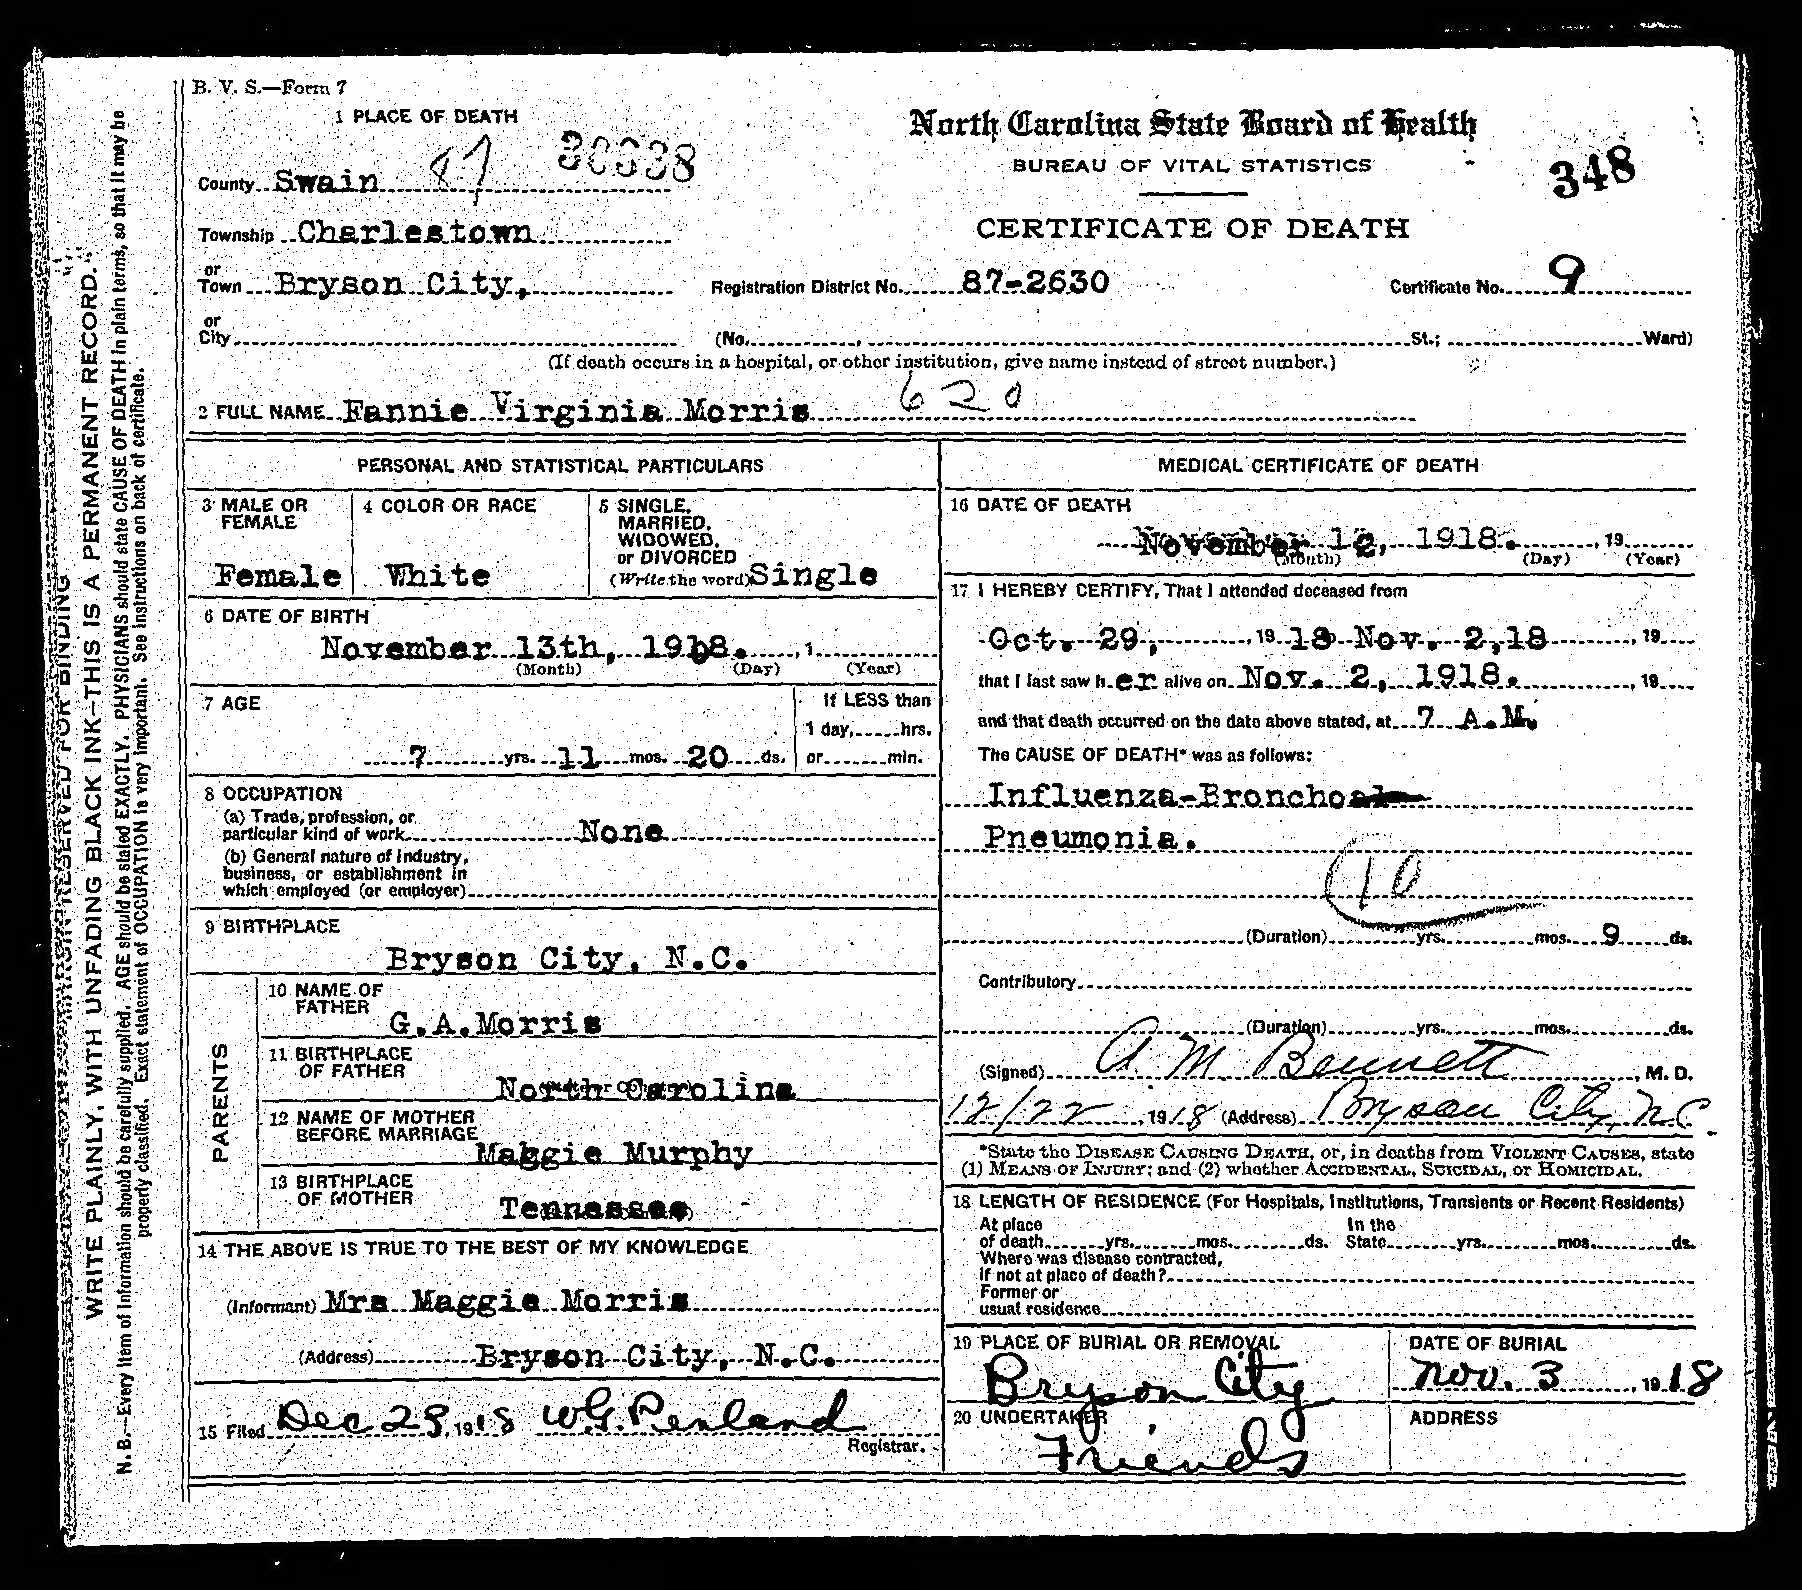 B. V. S.—Form 7
1 PLACE OF DEATH
87 30638
County Swain
Township Charlestown
or
Town Bryson City,
or
City
North Carolina State Board of Health
BUREAU OF VITAL STATISTICS
348
CERTIFICATE OF DEATH
Registration District No. 87-2630
Certificate No. 9
(No. , St.; Ward)
(If death occurs in a hospital, or other institution, give name instead of street number.)
2 FULL NAME Fannie Virginia Morris 620
PERSONAL AND STATISTICAL PARTICULARS
3 MALE OR
FEMALE
Female
4 COLOR OR RACE
White
5 SINGLE,
MARRIED,
WIDOWED,
or DIVORCED
(Write the word) Single
6 DATE OF BIRTH
November 13th, 1918. , 1
(Month) (Day) (Year)
7 AGE
7 yrs. 11 mos. 20 ds.
If LESS than
1 day, hrs.
or min.
8 OCCUPATION
(a) Trade, profession, or
particular kind of work None
(b) General nature of Industry,
business, or establishment in
which employed (or employer)
9 BIRTHPLACE
Bryson City, N.C.
PARENTS
10 NAME OF
FATHER
G.A.Morris
11 BIRTHPLACE
OF FATHER
North Carolina
12 NAME OF MOTHER
BEFORE MARRIAGE
Maggie Murphy
13 BIRTHPLACE
OF MOTHER
Tennessee
14 THE ABOVE IS TRUE TO THE BEST OF MY KNOWLEDGE
(Informant) Mrs Maggie Morris
(Address) Bryson City, N.C.
15 Filed Dec 28, 1918 W.G. Penland
Registrar.
MEDICAL CERTIFICATE OF DEATH
16 DATE OF DEATH
November 12, 1918. , 19
(Month) (Day) (Year)
17 I HEREBY CERTIFY, That I attended deceased from
Oct. 29, , 19 18 Nov. 2,18 , 19
that I last saw h er alive on Nov. 2, 1918. , 19
and that death occurred on the date above stated, at 7 A.M.
The CAUSE OF DEATH* was as follows:
Influenza-Broncho
Pneumonia.
10
(Duration) yrs. mos. 9 ds.
Contributory
(Duration) yrs. mos. ds.
(Signed) A M Bennett , M. D.
12/22, 1918 (Address) Bryson City, N.C.
*State the DISEASE CAUSING DEATH, or, in deaths from VIOLENT CAUSES, state
(1) MEANS OF INJURY; and (2) whether ACCIDENTAL, SUICIDAL, or HOMICIDAL.
18 LENGTH OF RESIDENCE (For Hospitals, Institutions, Transients or Recent Residents)
At place
of death yrs. mos. ds.
In the
State yrs. mos. ds.
Where was disease contracted,
If not at place of death?
Former or
usual residence
19 PLACE OF BURIAL OR REMOVAL
Bryson City
DATE OF BURIAL
Nov. 3, 1918
20 UNDERTAKER
Friends
ADDRESS
MARGIN RESERVED FOR BINDING
WRITE PLAINLY, WITH UNFADING BLACK INK—THIS IS A PERMANENT RECORD.
N. B.—Every item of information should be carefully supplied. AGE should be stated EXACTLY. PHYSICIANS should state CAUSE OF DEATH in plain terms, so that it may be
properly classified. Exact statement of OCCUPATION is very important. See instructions on back of certificate.